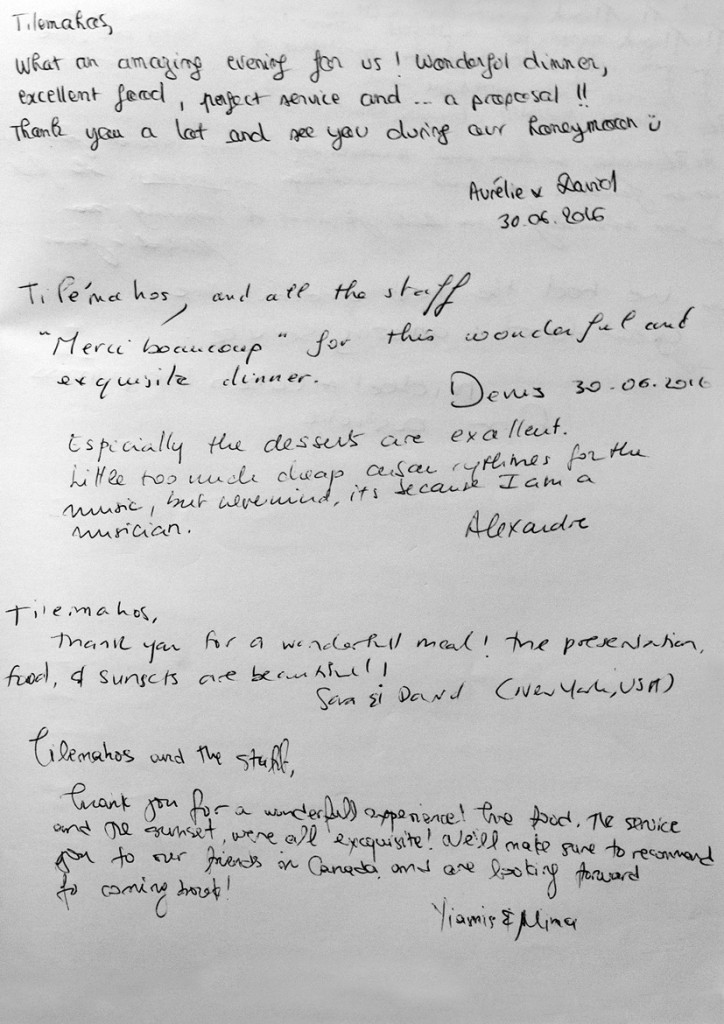 Tilemahos,
What an amazing evening for us ! Wonderful dinner,
excellent food, perfect service and ... a proposal !!
Thank you a lot and see you during our honeymoon ü
Aurélie & David
30.06.2016
Tilémahos, and all the staff
"Merci beaucoup" for this wonderful and
exquisite dinner.
Denis 30.06.2016
Espicially the desserts are exallent.
Little too much cheap rythmes for the
music, but nevermind, its because I am a
musician.
Alexandre
Tilemahos,
Thank you for a wonderfull meal! The presentation,
food, & sunsets are beautiful!
Sara & David (New York, USA)
Tilemahos and the staff,
Thank you for a wonderfull experience! The food, The service
and the sunset, were all excquisite! We'll make sure to recommend
you to our friends in Canada and are looking forward
to coming back!
Yiannis & Mina